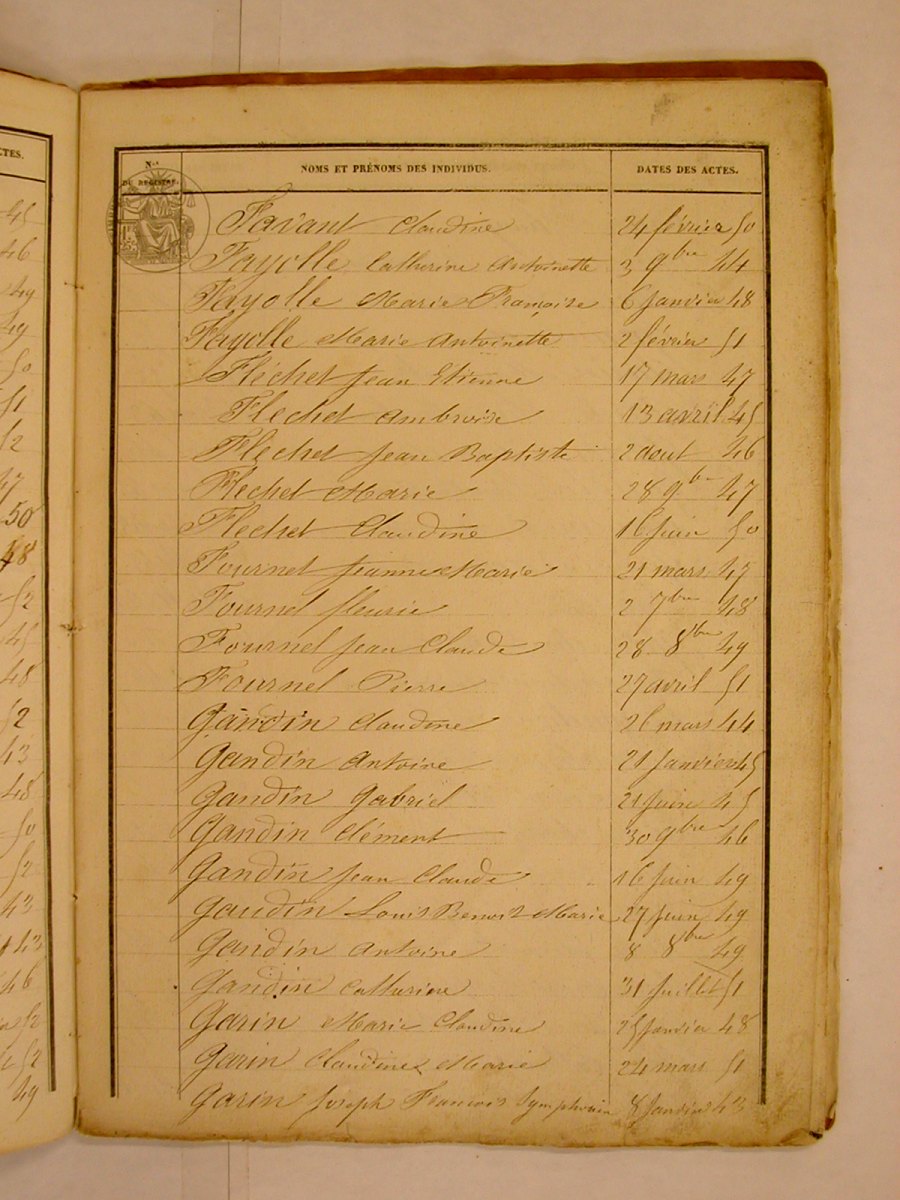 CTES.
45
46
49
49
50
51
52
47
50
48
52
45
48
52
43
48
50
52
43
43
46
52
52
49
N.os DU REGISTRE. NOMS ET PRÉNOMS DES INDIVIDUS. DATES DES ACTES.
Favant Claudine 24 février 50
Fayolle Catherine Antoinette 3 9bre 44
Fayolle Marie Françoise 6 Janvier 48
Fayolle Marie Antoinette 2 février 51
Flechet Jean Etienne 17 mars 47
Flechet Ambroise 13 avril 45
Flechet Jean Baptiste 2 aout 46
Flechet Marie 28 9bre 47
Flechet Claudine 16 Juin 50
Fournel Jeanne Marie 21 mars 47
Fournel fleurie 2 7bre 48
Fournel Jean Claude 28 8bre 49
Fournel Pierre 27 avril 51
Gandin Claudine 26 mars 44
Gandin Antoine 21 Janvier 45
Gandin Gabriel 21 Juin 45
Gandin Clément 30 9bre 46
Gandin Jean Claude 16 Juin 49
Gaudin Louis Benoit Marie 27 Juin 49
Gandin Antoine 8 8bre 49
Gandin Catherine 31 Juillet 51
Garin Marie Claudine 25 Janvier 48
Garin Claudine Marie 24 mars 51
Garin Joseph François Symphorien 8 Janvier 43